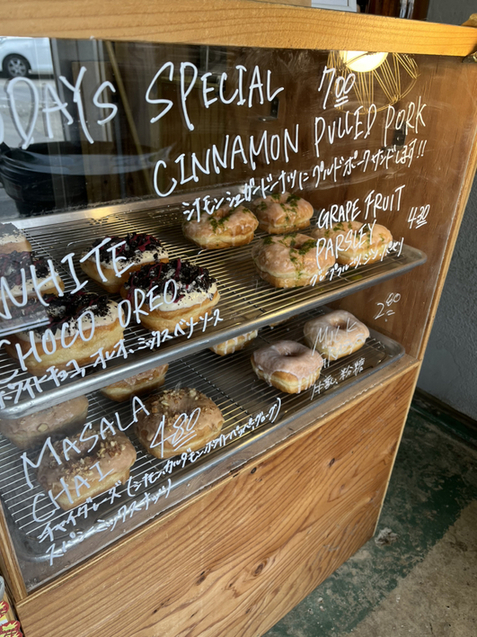 ODAY'S SPECIAL 700
CINNAMON PULLED PORK
シナモンシュガードーナツにプルドポークサンドします!!
GRAPE FRUIT
PARSLEY 420
WHITE
CHOCO OREO
ホワイトチョコ、オレオ、ミックスペナンス
MILK 280
牛乳、粉糖
MASALA
CHAI 480
チャイグレーズ(シナモン、カルダモン、ホワイトペッパー、クローブ)
スパイシーミックスナッツ